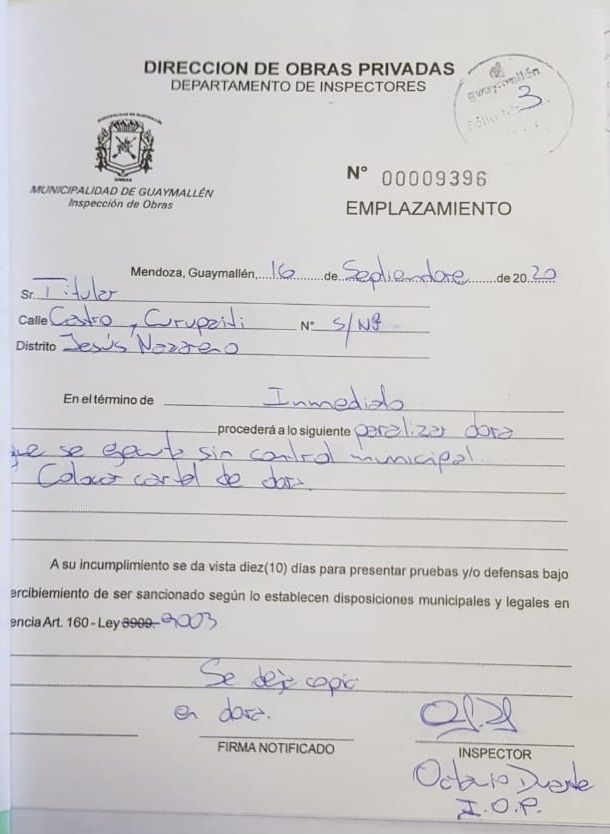 DIRECCION DE OBRAS PRIVADAS
DEPARTAMENTO DE INSPECTORES
Guaymallén
Folio N° 3
MUNICIPALIDAD DE GUAYMALLÉN
Inspección de Obras
N° 00009396
EMPLAZAMIENTO
Mendoza, Guaymallén, 16 de Septiembre de 2020
Sr. Titular
Calle Castro y Curupaiti N° S/Nº
Distrito Jesús Nazareno
En el término de Inmediato
procederá a lo siguiente paralizar obra
que se ejecuta sin control municipal.
y Colocar cartel de obra.
A su incumplimiento se da vista diez(10) días para presentar pruebas y/o defensas bajo
ercibiemiento de ser sancionado según lo establecen disposiciones municipales y legales en
encia Art. 160 - Ley 3909- 9003
Se deja copia
en obra.
FIRMA NOTIFICADO
INSPECTOR
Octavio Duarte
I.O.P.